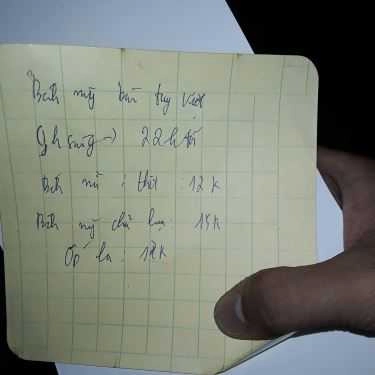 Bánh mỳ bùi tuy Việt
9h sáng → 22h tối
Bánh mì : thịt 12k
Bánh mỳ chả lụa: 15k
Ốp la: 12k